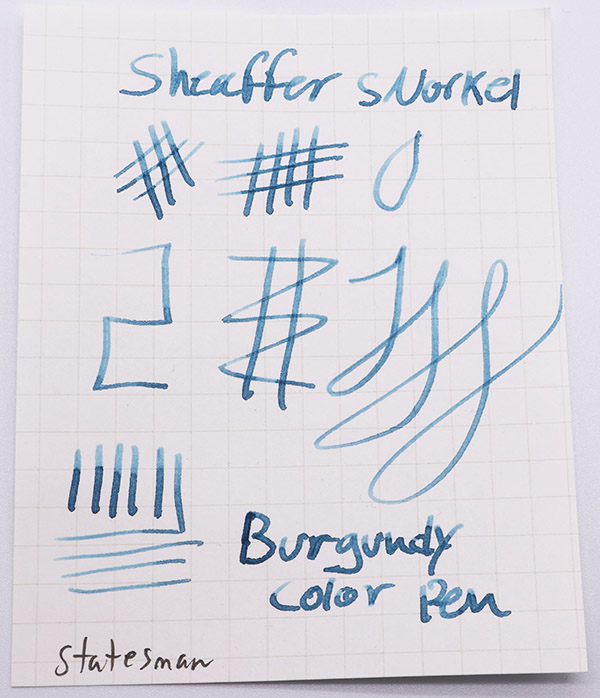 Sheaffer SNorkel
Burgundy
Color Pen
Statesman